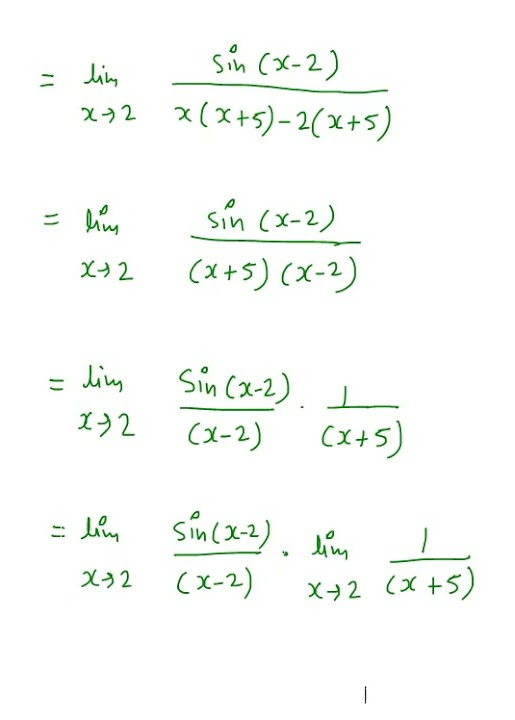 = lim x→2 sin (x-2) / x(x+5)-2(x+5)
= lim x→2 sin (x-2) / (x+5) (x-2)
= lim x→2 Sin (x-2) / (x-2) . 1 / (x+5)
= lim x→2 Sin (x-2) / (x-2) . lim x→2 1 / (x+5)